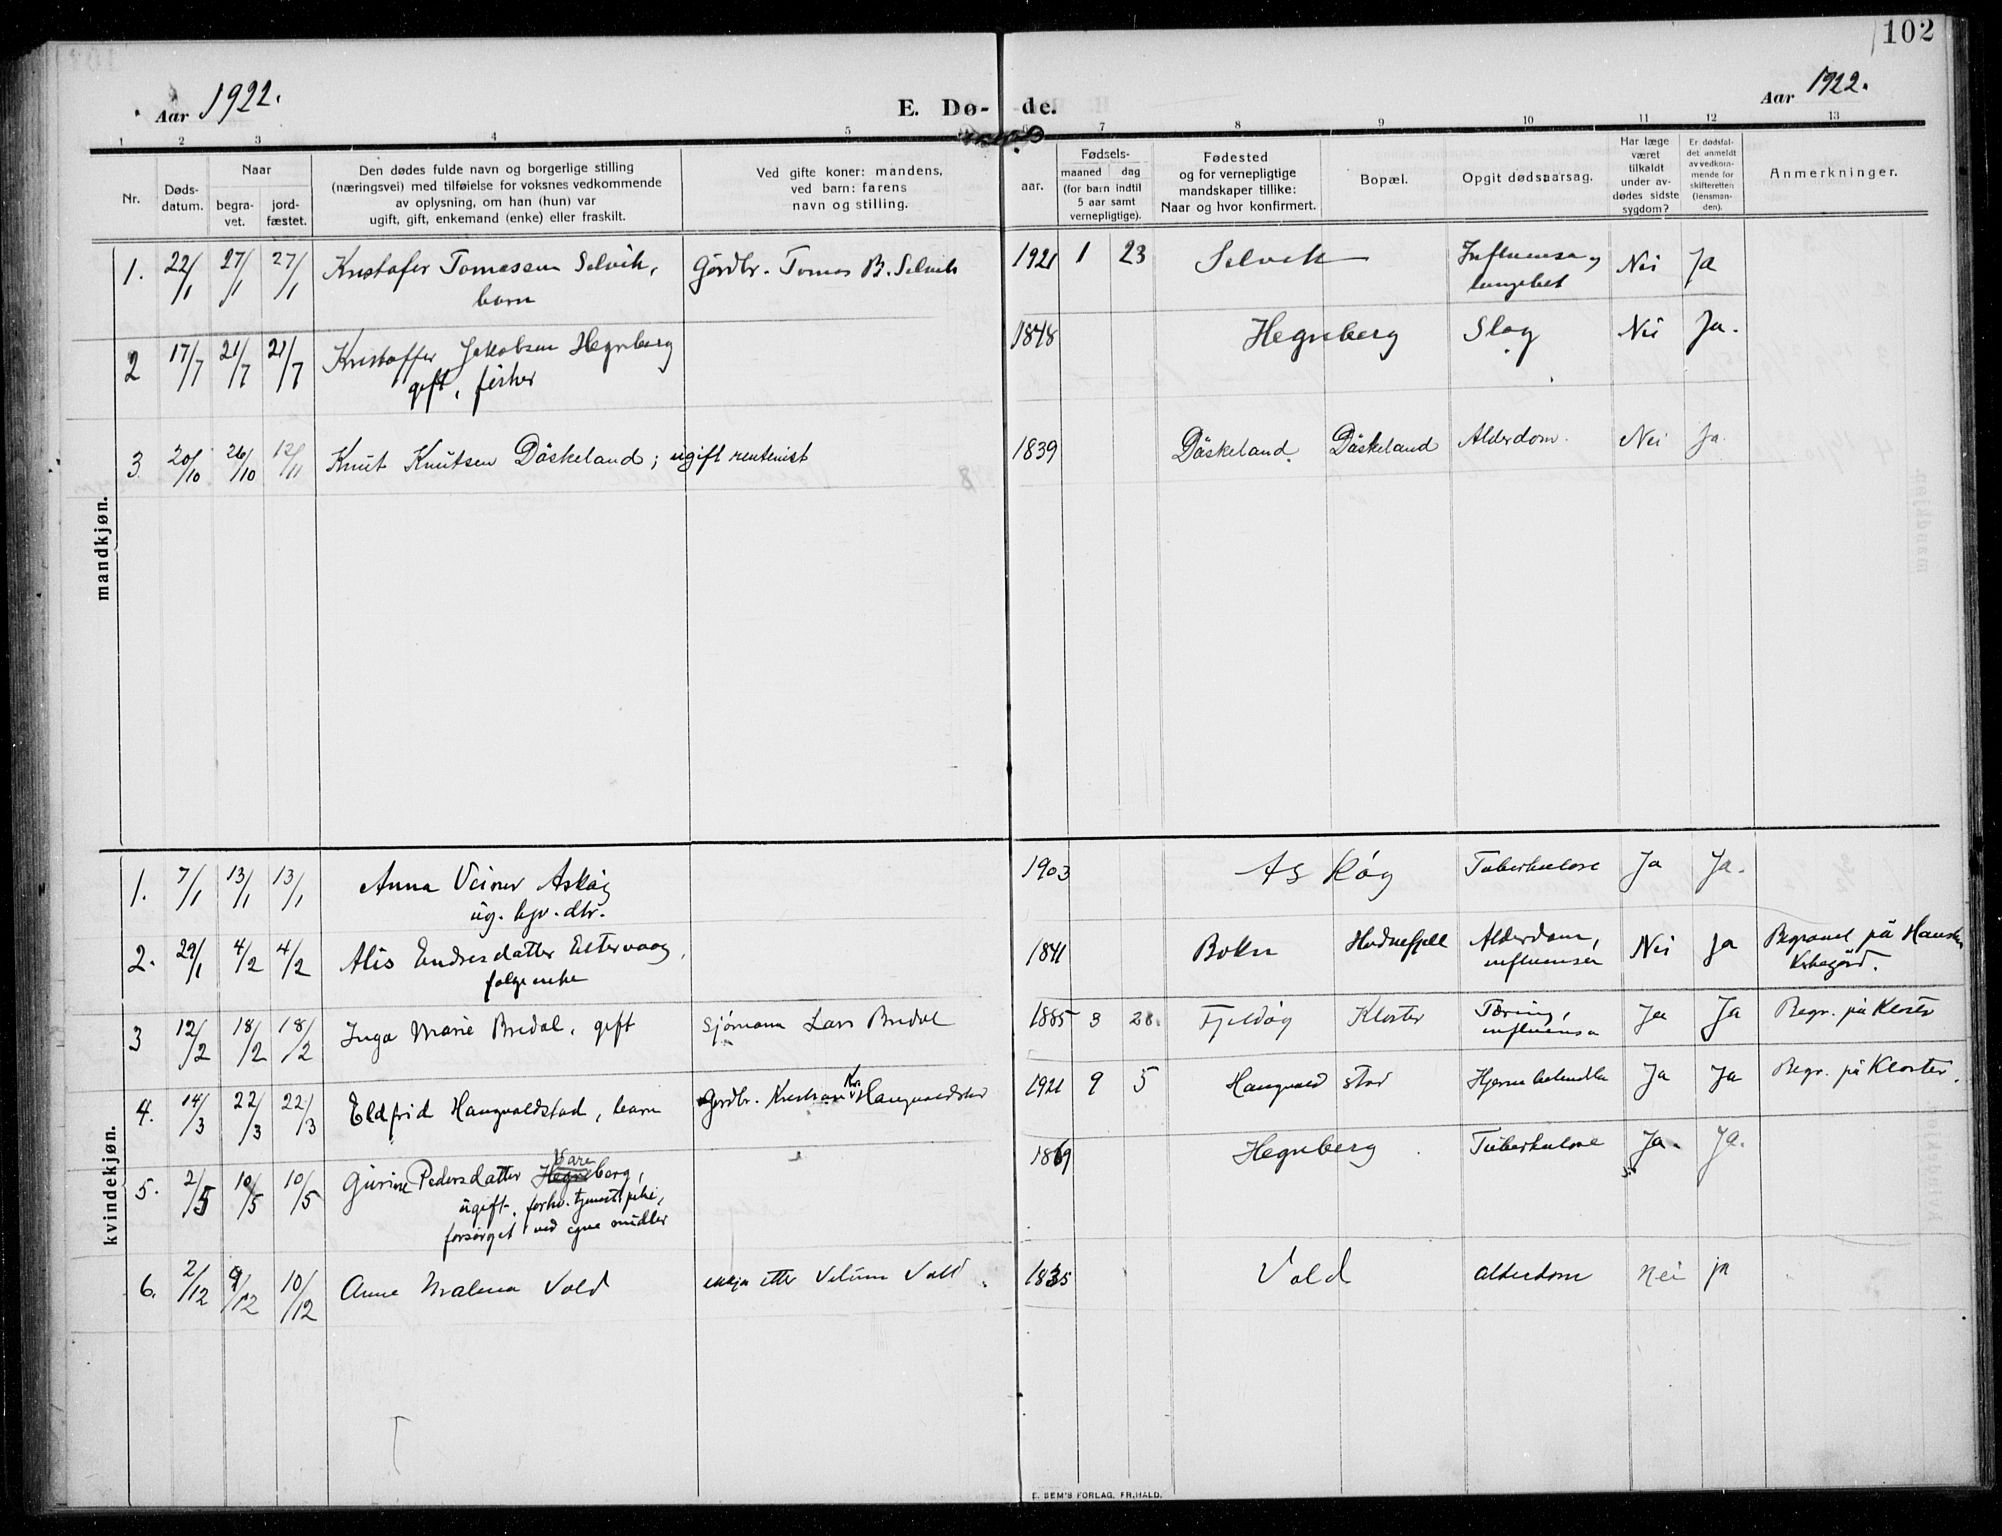 102
Aar 1922.
E. Dø- de.
Aar 1922.
1 2 3 4 5 6 7 8 9 10 11 12 13
Nr.
Døds-
datum.
Naar
begra-
vet.
jord-
fæstet.
Den dødes fulde navn og borgerlige stilling
(næringsvei) med tilføielse for voksnes vedkommende
av oplysning, om han (hun) var
ugift, gift, enkemand (enke) eller fraskilt.
Ved gifte koner: mandens,
ved barn: farens
navn og stilling.
Fødsels-
aar.
maaned dag
(for barn indtil
5 aar samt
vernepligtige).
Fødested
og for vernepligtige
mandskaper tillike:
Naar og hvor konfirmert.
Bopæl.
Opgit dødsaarsag.
Har læge
været
tilkaldt
under av-
dødes sidste
sygdom?
Er dødsfal-
det anmeldt
av vedkom-
mende for
skifteretten
(lensman-
den).
Anmerkninger.
mandkjøn.
1. 22/1 27/1 27/1 Kristofer Tomassen Selvik, Gårdbr. Tomas B. Selvik 1921 1 23 Selvik Influensa og Nei Ja
barn lungebet
2 17/7 21/7 21/7 Kristoffer Jakobsen Hegreberg 1848 Hegreberg Slag Nei Ja.
gift, fisker
3 20/10 26/10 12/11 Knut Knutsen Dåskeland; ugift rentenist 1839 Dåskeland. Dåskeland Alderdom. Nei Ja.
kvindekjøn.
1. 7/1 13/1 13/1 Anna Askøy 1903 Askøy Tuberkulose Ja Ja.
ug. dtr.
2. 29/1 4/2 4/2 Alis Endresdatter Eltervaag, 1841 Bokn Hodnefjell Alderdom, Nei Ja Begravet på Hauske
influensa Kirkegård.
3 12/2 18/2 18/2 Inga Marie Bredal, gift Sjømann Lars Bredal 1885 3 28. Fjeldøy Kloster Tæring, Ja Ja Begr. på Kloster
influensa
4. 14/3 22/3 22/3 Eldfrid Haugvaldstad, barn Gårdbr. Kristian Kr. Haugvaldstad 1921 9 5 Haugvaldstad Ja Ja Begr. på Kloster.
5. 2/5 10/5 10/5 Gurine Pedersdatter Hegreberg, Vare 1869 Hegreberg Tuberkulose Ja. Ja.
ugift. forhv. tjenestpike,
forsørget ved egne midler
6. 2/12 9/12 10/12 Anne Malena Vold enkja etter Vold 1835 Vold alderdom nei ja
E. SEM'S FORLAG, FR.HALD.